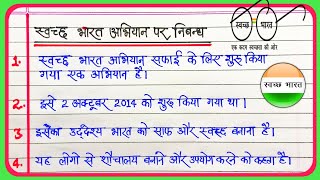 स्वच्छ भारत अभियान पर निबन्ध
स्वच्छ भारत
एक कदम स्वच्छता की ओर
1. स्वच्छ भारत अभियान सफाई के लिए शुरू किया
गया एक अभियान है।
स्वच्छ भारत
2. इसे 2 अक्टूबर 2014 को शुरू किया गया था।
3. इसका उद्देश्य भारत को साफ और स्वच्छ बनाना है।
4. यह लोगों से शौचालय बनाने और उपयोग करने को कहता है।